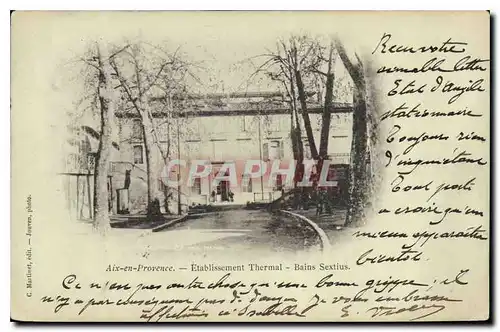 Recu votre
aimable lettre
Etat d'Angèle
stationnaire
Toujours rien
d'inquiétant
Tout porte
à croire qu'un
mieux apparaîtra
bientôt.
CARTE PRECIEL
C. Martinet, édit. - Jouven, photo.
Aix-en-Provence. — Établissement Thermal - Bains Sextius.
Ce n'est pas autre chose qu'une bonne grippe; il
n'y a par conséquent pas de danger. Je vous embrasse
affectueusement